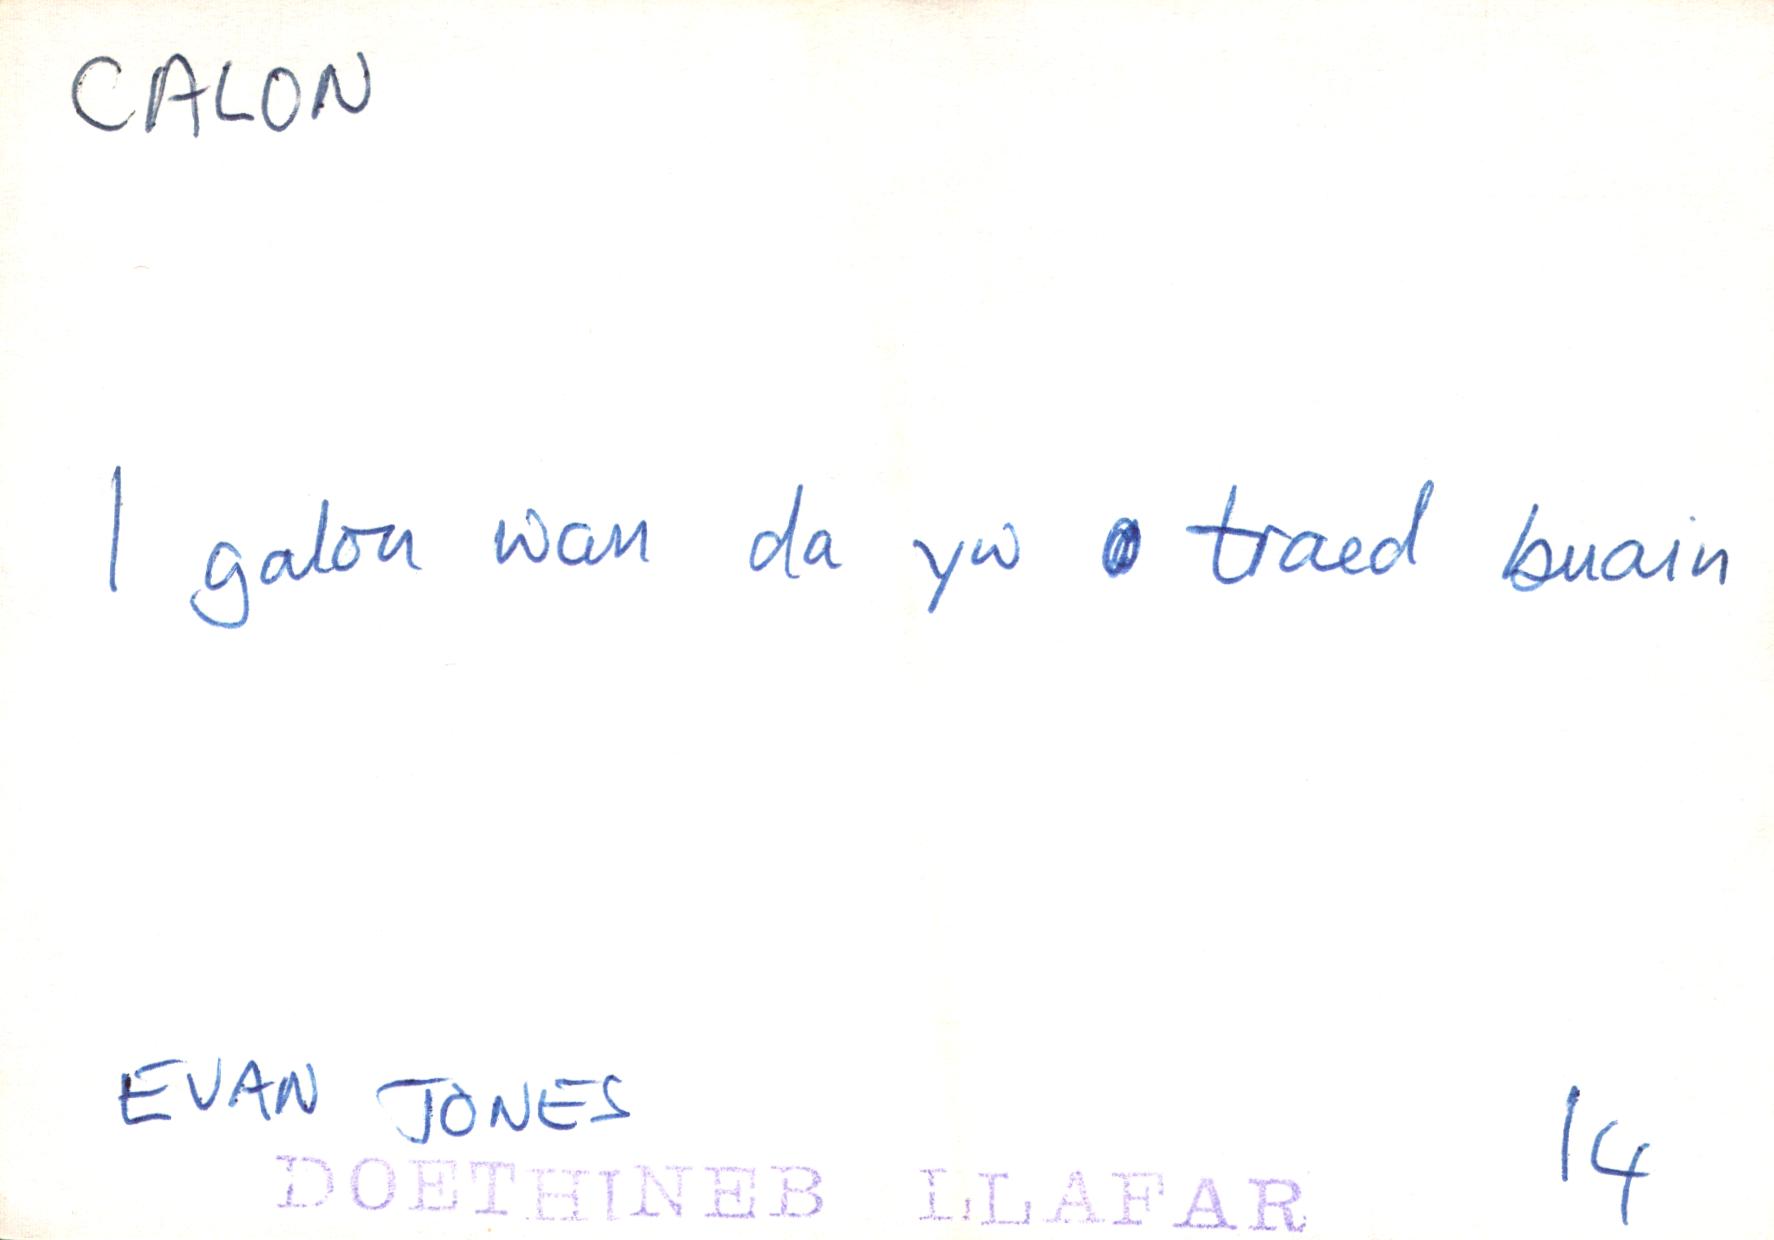 CALON
I galon wan da yw traed buain
EVAN JONES
14
DOETHINEB LLAFAR